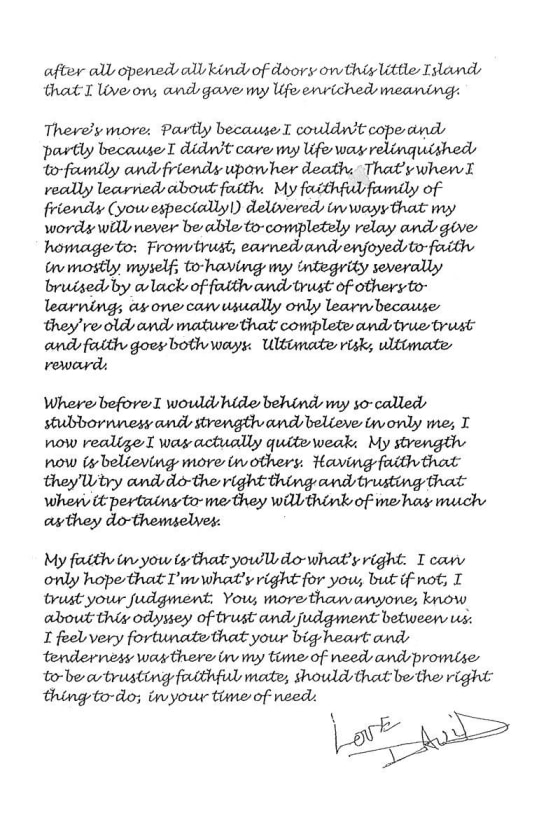 after all opened all kind of doors on this little Island
that I live on, and gave my life enriched meaning.
There's more. Partly because I couldn't cope and
partly because I didn't care my life was relinquished
to family and friends upon her death. That's when I
really learned about faith. My faithful family of
friends (you especially!) delivered in ways that my
words will never be able to completely relay and give
homage to. From trust, earned and enjoyed to faith
in mostly myself, to having my integrity severally
bruised by a lack of faith and trust of others to
learning, as one can usually only learn because
they're old and mature that complete and true trust
and faith goes both ways. Ultimate risk, ultimate
reward.
Where before I would hide behind my so called
stubbornness and strength and believe in only me, I
now realize I was actually quite weak. My strength
now is believing more in others. Having faith that
they'll try and do the right thing and trusting that
when it pertains to me they will think of me has much
as they do themselves.
My faith in you is that you'll do what's right. I can
only hope that I'm what's right for you, but if not, I
trust your judgment. You, more than anyone, know
about this odyssey of trust and judgment between us.
I feel very fortunate that your big heart and
tenderness was there in my time of need and promise
to be a trusting faithful mate, should that be the right
thing to do, in your time of need.
LOVE
DAVID